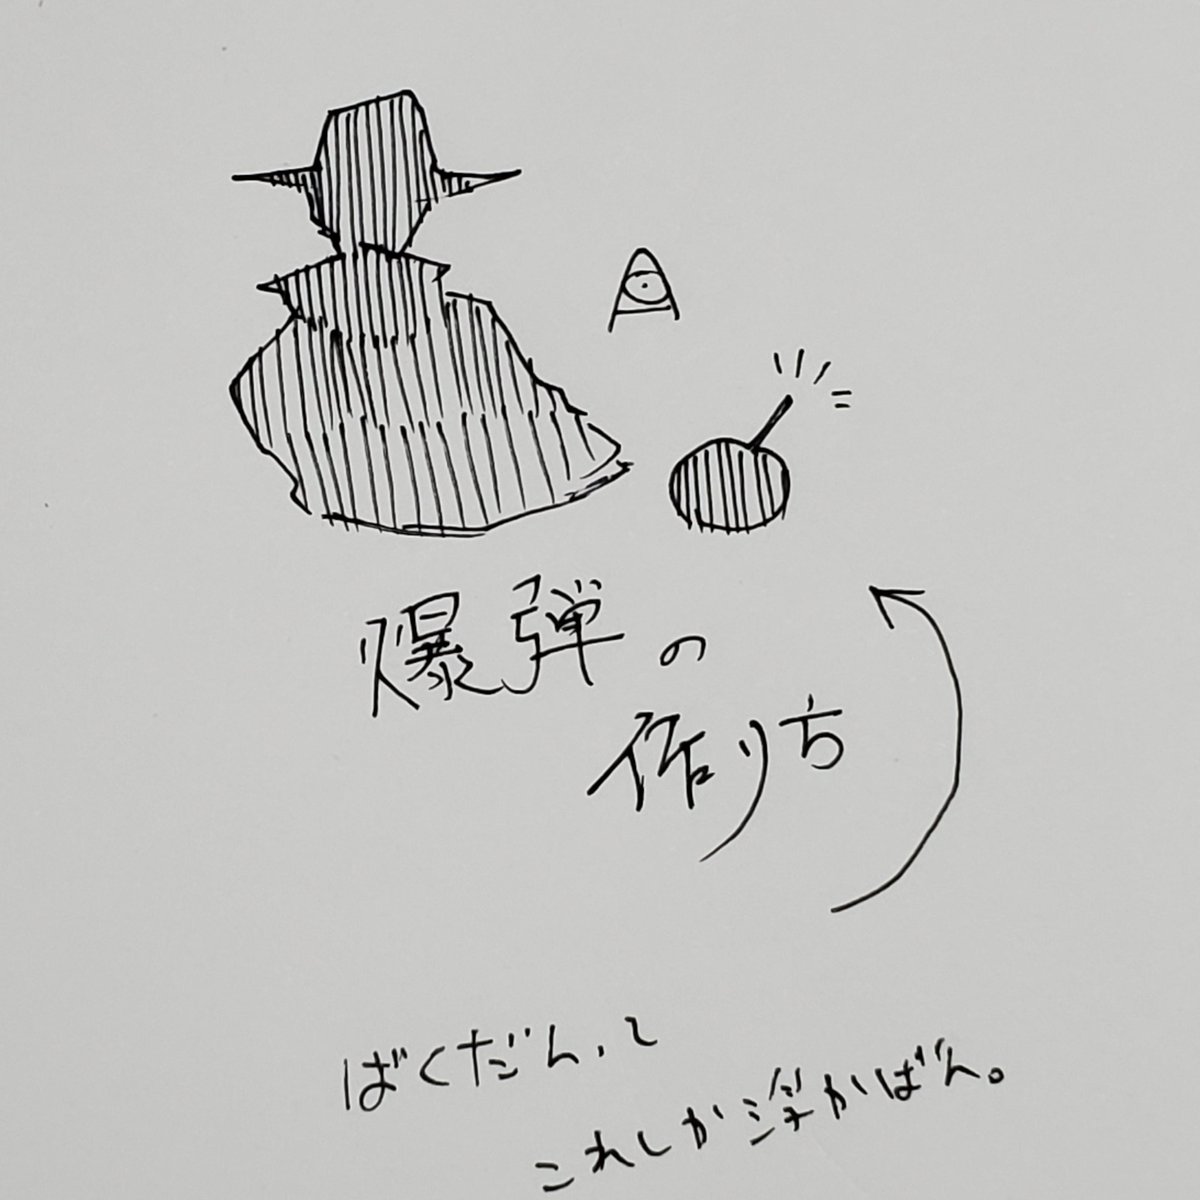 爆弾の
作り方
ばくだん、と
これしか浮かばん。